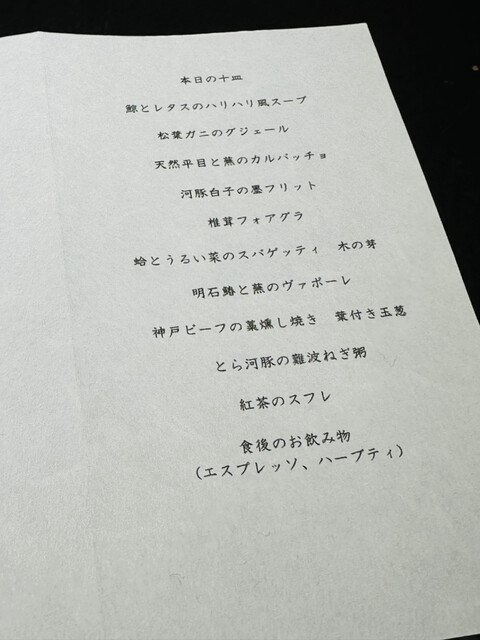 本日の十皿
鯨とレタスのハリハリ風スープ
松葉ガニのグジェール
天然平目と蕪のカルパッチョ
河豚白子の墨フリット
椎茸フォアグラ
蛤とうるい菜のスパゲッティ　木の芽
明石鰆と蕪のヴァポーレ
神戸ビーフの藁燻し焼き　葉付き玉葱
とら河豚の難波ねぎ粥
紅茶のスフレ
食後のお飲み物
（エスプレッソ、ハーブティ）